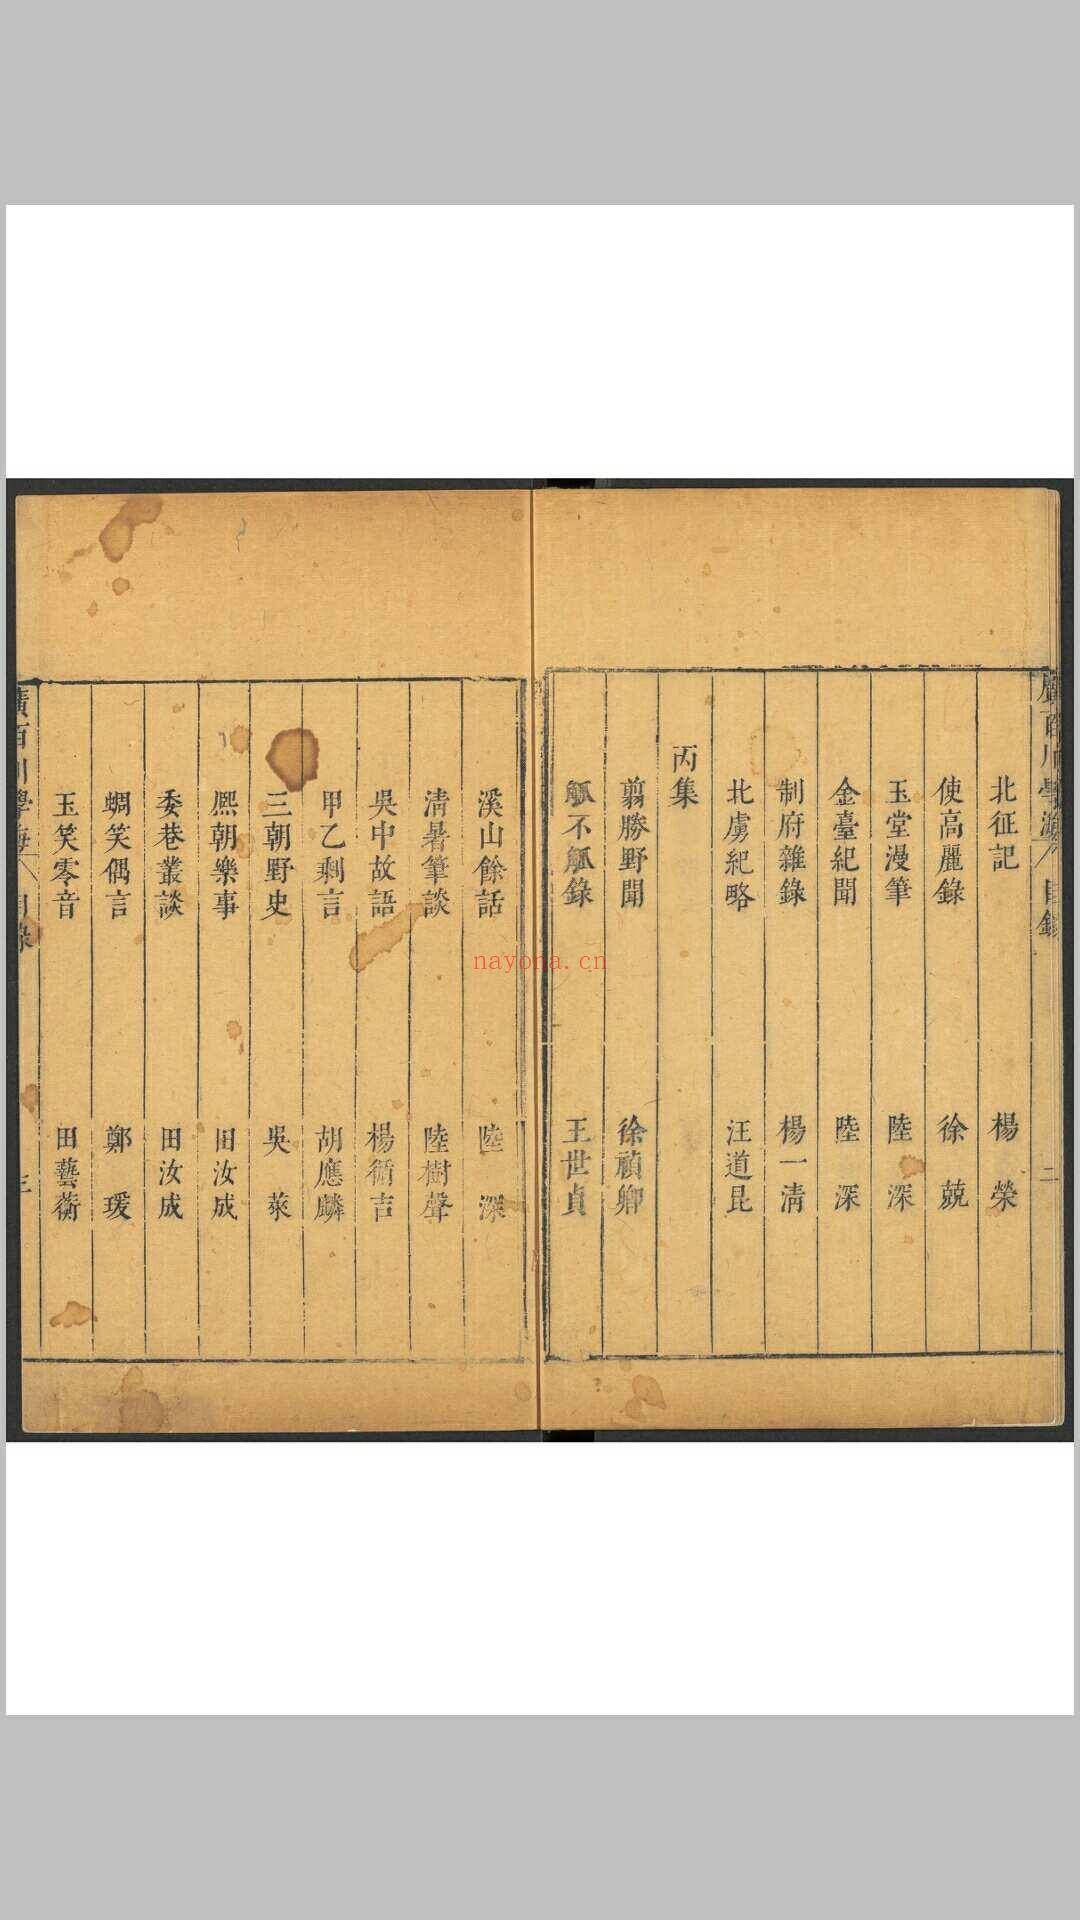 廣百川學海 目錄 二
北征記 楊榮
使高麗錄 徐兢
玉堂漫筆 陸深
金臺紀聞 陸深
制府雜錄 楊一清
北虜紀略 汪道昆
丙集
翦勝野聞 徐禎卿
觚不觚錄 王世貞
溪山餘話 陸深
清暑筆談 陸樹聲
吳中故語 楊循吉
甲乙剩言 胡應麟
三朝野史 吳萊
熙朝樂事 田汝成
委巷叢談 田汝成
蜩笑偶言 鄭瑗
玉笑零音 田藝蘅
廣百川學海 目錄 三
nayona.cn